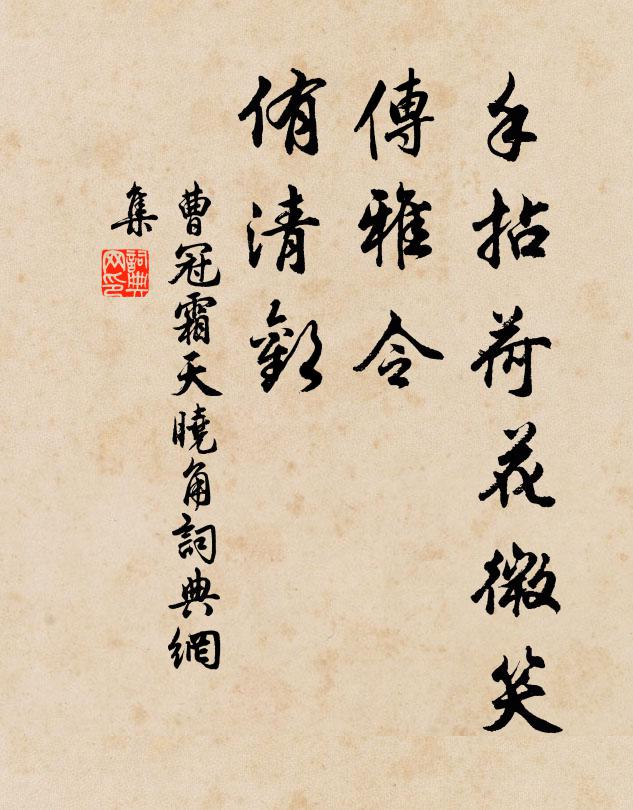 手拈荷花微笑
傳雅令
侑清歡
曹冠霜天曉角詞典網
集
詞典
网印